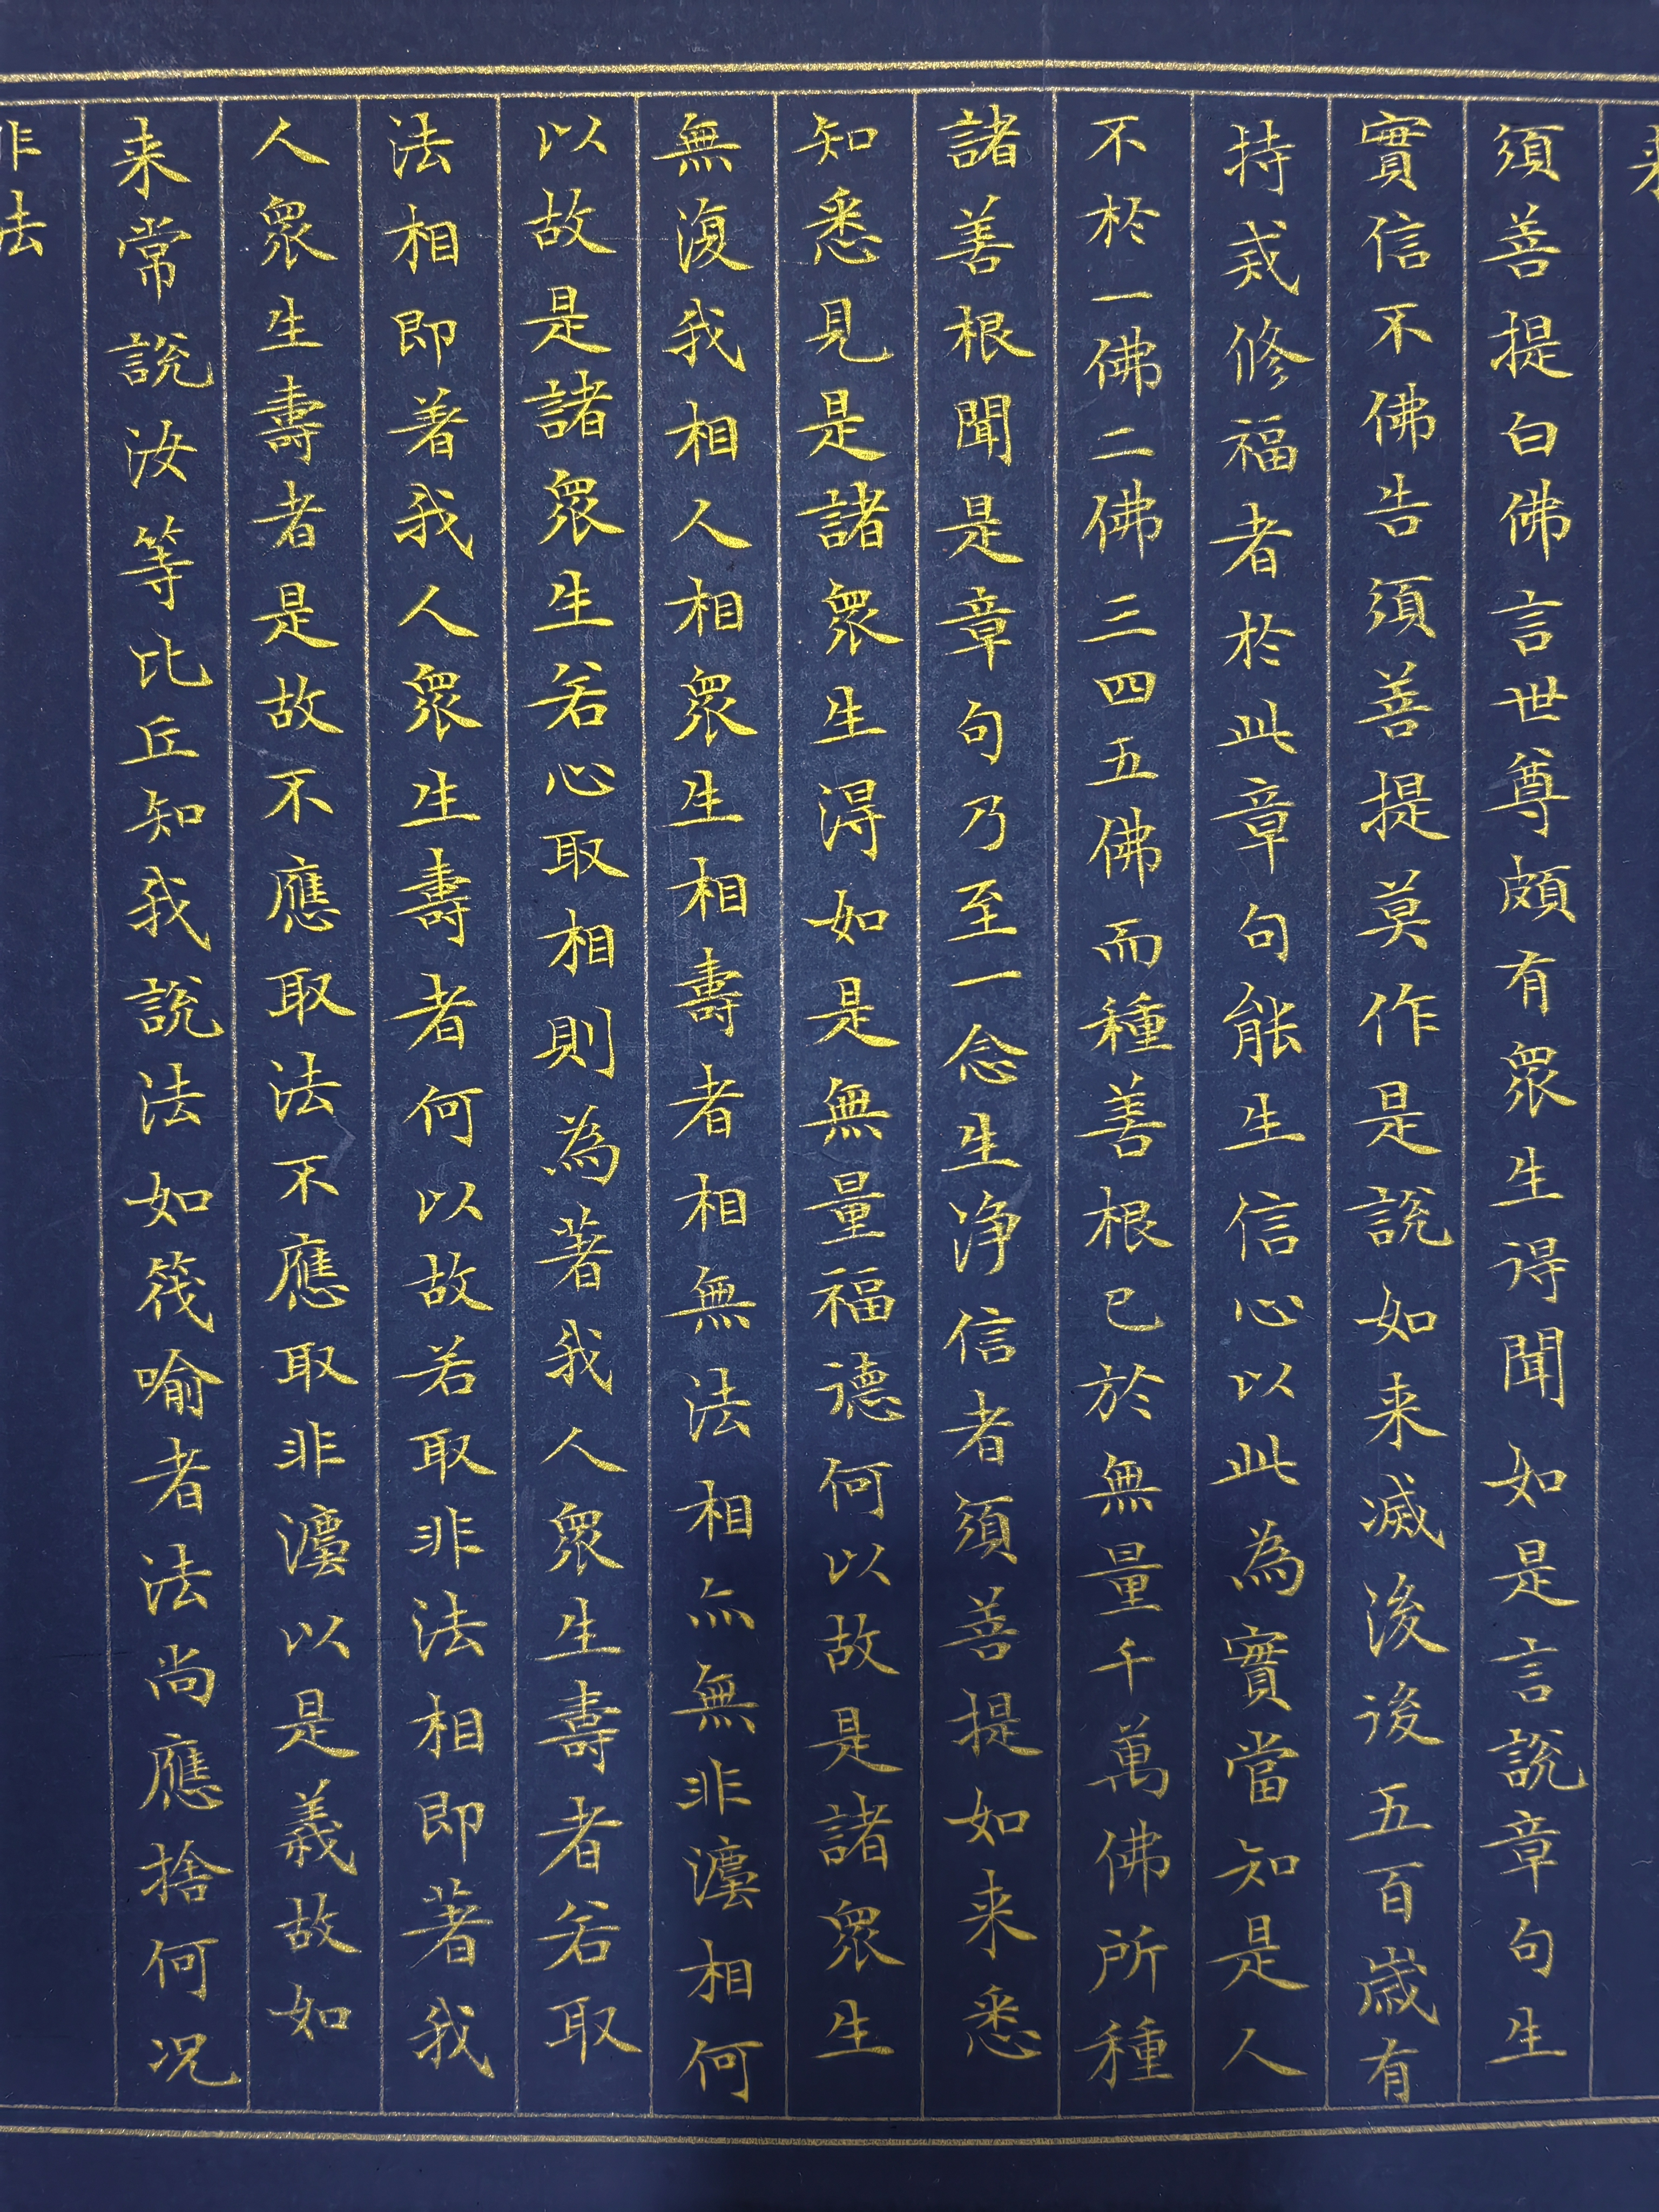 来
須菩提白佛言世尊頗有眾生得聞如是言說章句生
實信不佛告須菩提莫作是說如来滅後後五百歲有
持戒修福者於此章句能生信心以此為實當知是人
不於一佛二佛三四五佛而種善根已於無量千萬佛所種
諸善根聞是章句乃至一念生淨信者須菩提如来悉
知悉見是諸眾生得如是無量福德何以故是諸眾生
無復我相人相眾生相壽者相無法相亦無非法相何
以故是諸眾生若心取相則為著我人眾生壽者若取
法相即著我人眾生壽者何以故若取非法相即著我
人眾生壽者是故不應取法不應取非法以是義故如
来常說汝等比丘知我說法如筏喻者法尚應捨何況
非法